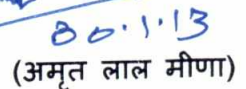 30.1.13
(अमृत लाल मीणा)